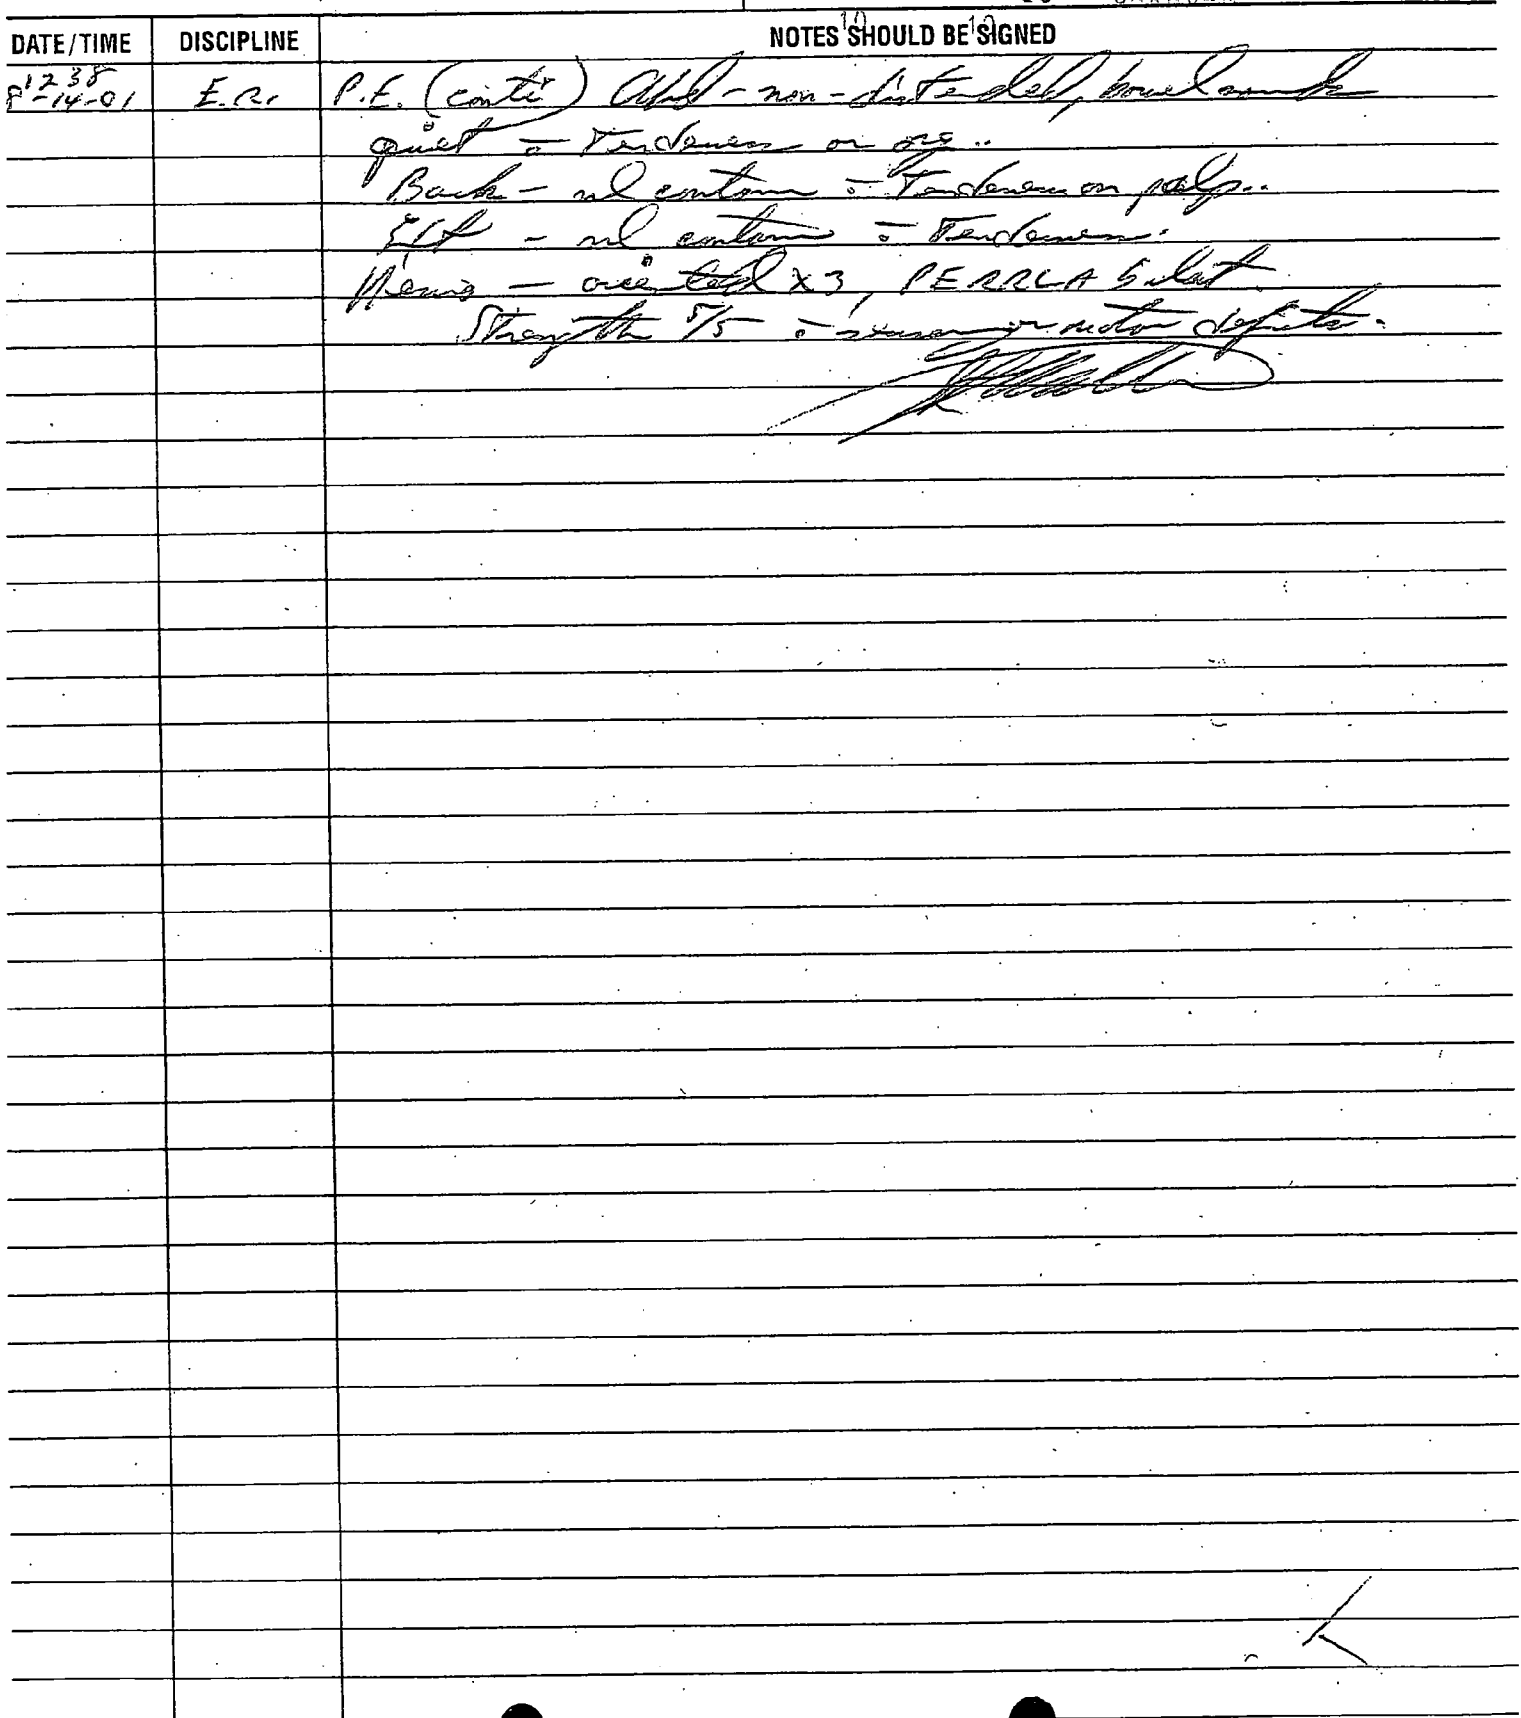 DATE/TIME DISCIPLINE NOTES SHOULD BE SIGNED
1238
8-14-01 E.R. P.E. (conti) Abd - non-distended, bowel sounds
quiet - Tenderness or org..
Back - nl contour - Tenderness on palp..
Ext - nl contour - Tenderness.
Neuro - oriented x3, PERRLA bilat.
Strength 5/5 - sensory or motor deficits.